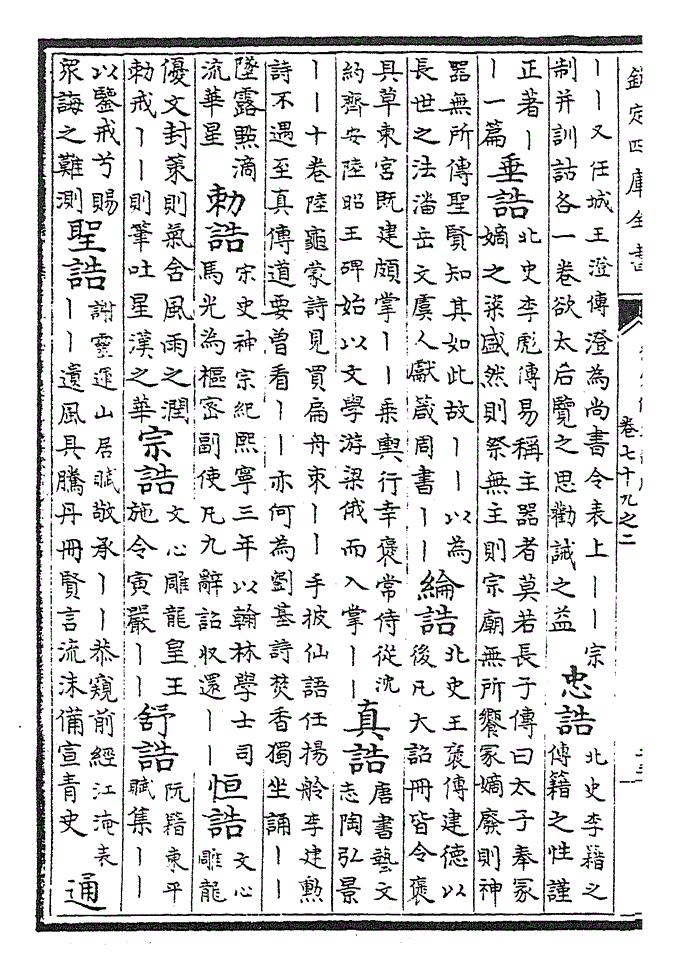 欽定四庫全書
卷七十九之二
丨丨又任城王澄傳澄為尚書令表上丨丨宗
制并訓詁各一卷欲太后覽之思勸誡之益
忠誥
北史李籍之
傳籍之性謹
正著丨
丨一篇
垂誥
北史李彪傳易稱主器者莫若長子傳曰太子奉冢
嫡之粢盛然則祭無主則宗廟無所饗冢嫡廢則神
器無所傳聖賢知其如此故丨丨以為
長世之法潘岳文虞人獻箴周書丨丨
綸誥
北史王褒傳建德以
後凡大詔冊皆令褒
具草東宮既建頗掌丨丨乘輿行幸褒常侍從沈
約齊安陸昭王碑始以文學游梁俄而入掌丨丨
真誥
唐書藝文
志陶弘景
丨丨十卷陸龜蒙詩見買扁舟朿丨丨手披仙語任揚舲李建勲
詩不遇至真傳道要曽看丨丨亦何為劉基詩焚香獨坐誦丨丨
墜露㸃滴
流華星
勅誥
宗史神宗紀熙寧三年以翰林學士司
馬光為樞宻副使凡九辭詔收還丨丨
恒誥
文心
雕龍
優文封䇿則氣含風雨之潤
勅戒丨丨則筆吐星漢之華
宗誥
文心雕龍皇王
施令寅嚴丨丨
舒誥
阮籍東平
賦集丨丨
以鑒戒兮賜
衆誨之難測
聖誥
謝靈運山居賦敬承丨丨恭窺前經江淹表
丨丨遺風具騰丹冊賢言流沫備宣青史
通